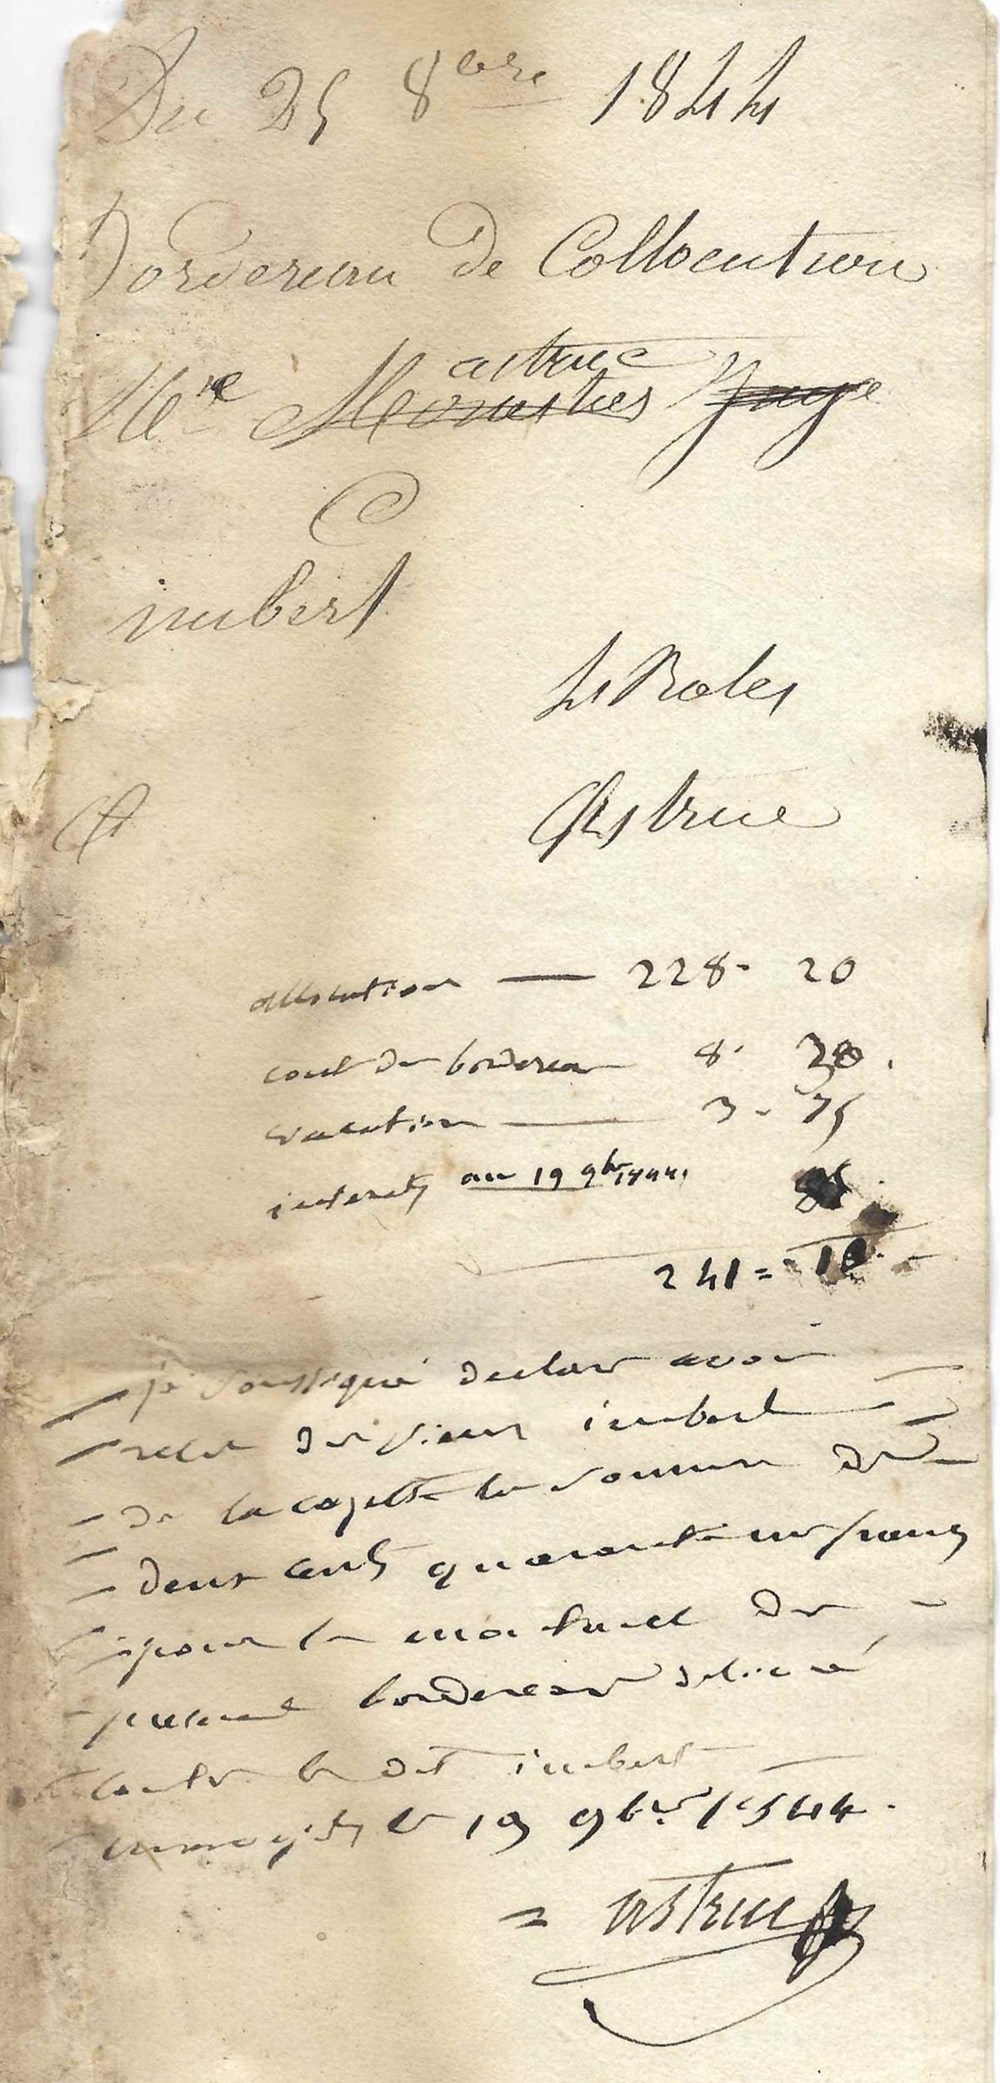 Du 25 8bre 1844
Bordereau de Collocution
astruc
Me Monestier Juge
C
imbert
4 Roles
Astruc
allocution — 228. 20
cout du bordereau 8. 30.
vacation — 3. 75
interets au 19 9bre 1844 85
241 = 10
je soussigné declare avoir
recu du sieur imbert
de la capelle la somme de
deux cents quarante un francs
pour le montant du
present bordereau delivré
contre le dit imbert
le 19 9bre 1844.
= astruc